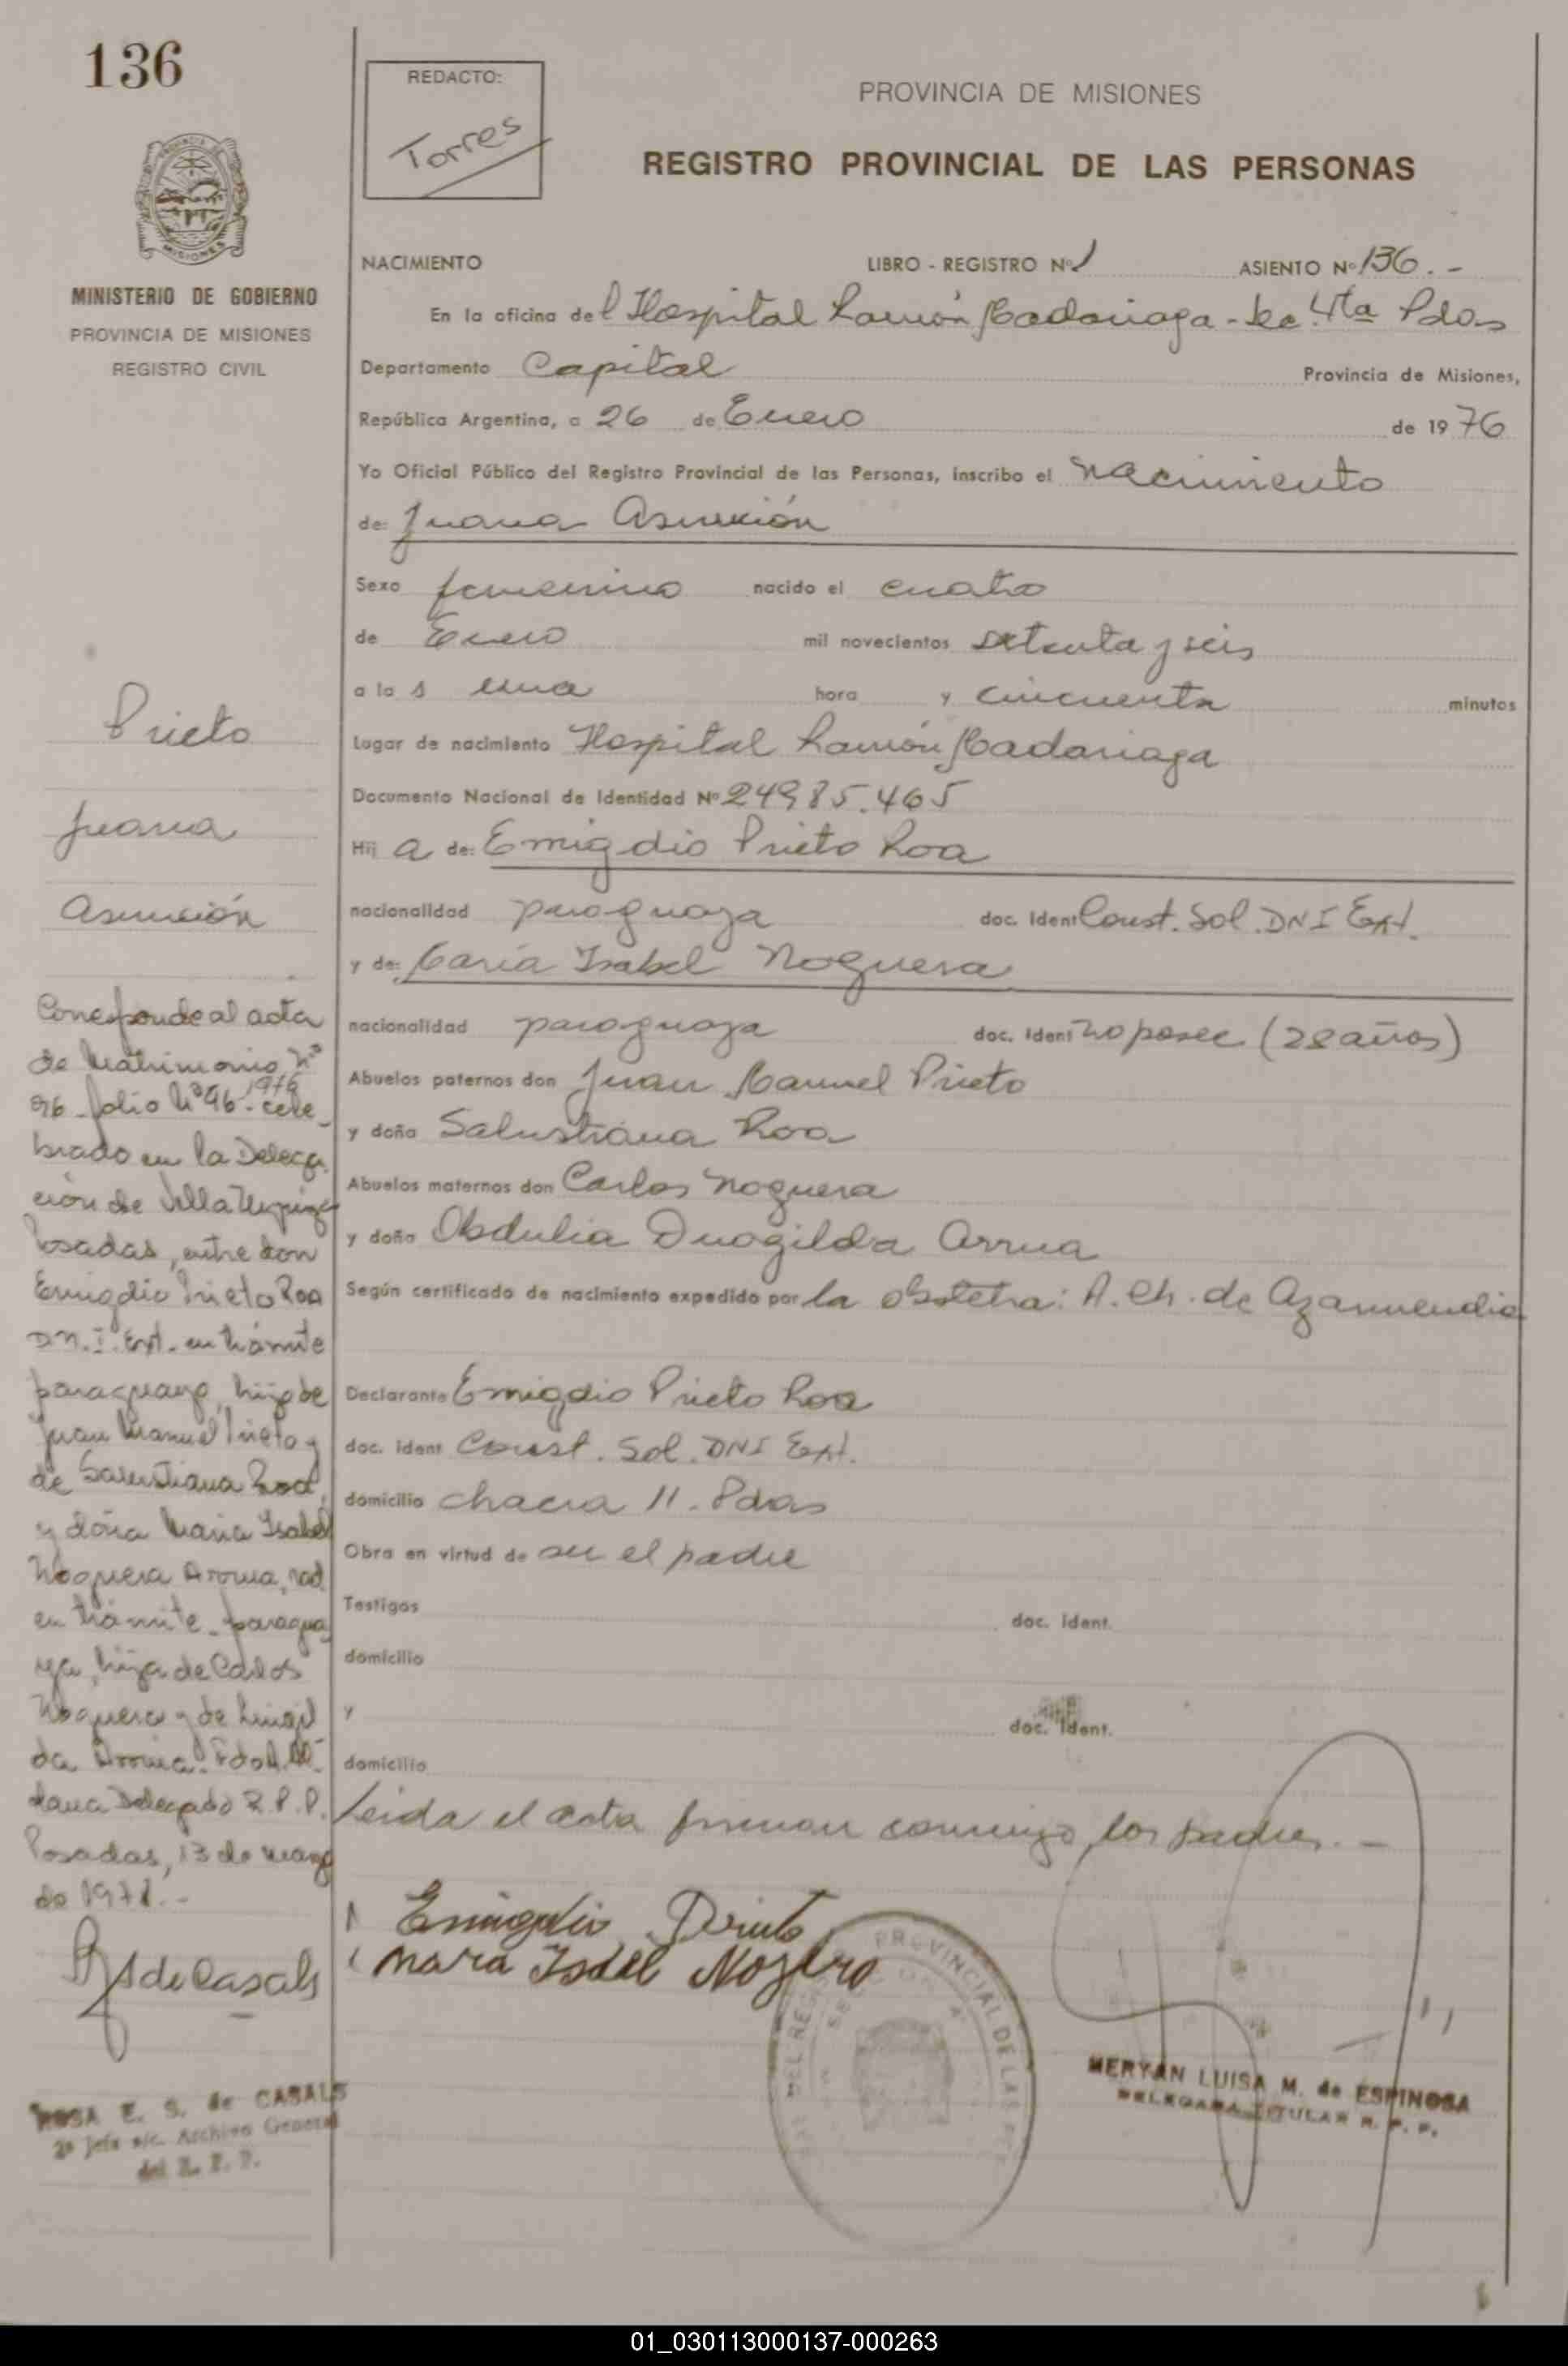 136
REDACTO:
Torres
PROVINCIA DE MISIONES
REGISTRO PROVINCIAL DE LAS PERSONAS
MISIONES
MINISTERIO DE GOBIERNO
PROVINCIA DE MISIONES
REGISTRO CIVIL
NACIMIENTO LIBRO - REGISTRO Nº 1 ASIENTO Nº 136.-
En la oficina del Hospital Ramón Madariaga - 4ta Pdas
Departamento Capital Provincia de Misiones,
República Argentina, a 26 de Enero de 1976
Yo Oficial Público del Registro Provincial de las Personas, inscribo el nacimiento
de: Juana Asunción
Sexo femenino nacido el cuatro
de Enero mil novecientos setenta y seis
a la s una hora y cincuenta minutos
Lugar de nacimiento Hospital Ramón Madariaga
Documento Nacional de Identidad Nº 24985.465
Hij a de: Emigdio Prieto Roa
nacionalidad paraguaya doc. Ident Const. Sol. DNI Ext.
y de: María Isabel Noguera
nacionalidad paraguaya doc. Ident no posee (28 años)
Abuelos paternos don Juan Manuel Prieto
y doña Salustiana Roa
Abuelos maternos don Carlos Noguera
y doña Obdulia Duogilda Arrua
Según certificado de nacimiento expedido por la obstetra: A. Ch. de Azarmendia
Declarante Emigdio Prieto Roa
doc. ident Const. Sol. DNI Ext.
domicilio chacra 11. Pdas
Obra en virtud de ser el padre
Testigos doc. ident.
domicilio
y doc. Ident.
domicilio
Leida el acta firman conmigo los padres. -
Emigdio Prieto
Mara Isabel Noguera
PROVINCIAL DE LAS
MERYAN LUISA M. de ESPINOSA
DELEGADA TITULAR R. P. P.
Prieto
Juana
Asunción
Corresponde al acta
de Matrimonio Nº
96 - folio Nº 96 - 1976 cele-
brado en la Delega
ción de Villa Urquiza
Posadas, entre don
Emigdio Prieto Roa
D.N.I. Ext. en trámite
paraguayo, hijo de
Juan Manuel Prieto y
de Salustiana Roa,
y doña Maria Isabel
Noguera Arrua, nad.
en trámite - paragua
ya, hija de Carlos
Noguera y de
da Arrua. Fdo
Delegado R.P.P.
Posadas, 13 de marzo
de 1978.-
R S de Casals
ROSA E. S. de CASALS
2º Jefe a/c. Archivo General
del R. P. P.
01_030113000137-000263